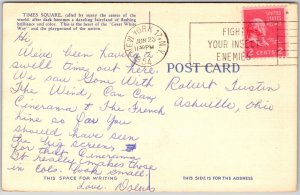 TIMES SQUARE, called by many the center of the
world, after dark becomes a dazzling fairyland of flashing
brilliance and color. This is the heart of the "Great White
Way" and the playground of the nation.
NEW YORK, N.Y.
JUN 23
11 30 PM
FIGHT
YOUR INSECT
ENEMIES
2 CENTS 2
POST CARD
Hi
We've been having a
swell time out here.
We saw Gone With
The Wind, Can Can,
Cinerama & The French
line so far. You
should have seen
the big screen
for the Cinerama
It really makes those
in Colo. look small.
Love, Dolores
Robert Tustin
Ashville, Ohio
THIS SPACE FOR WRITING
THIS SIDE IS FOR THE ADDRESS